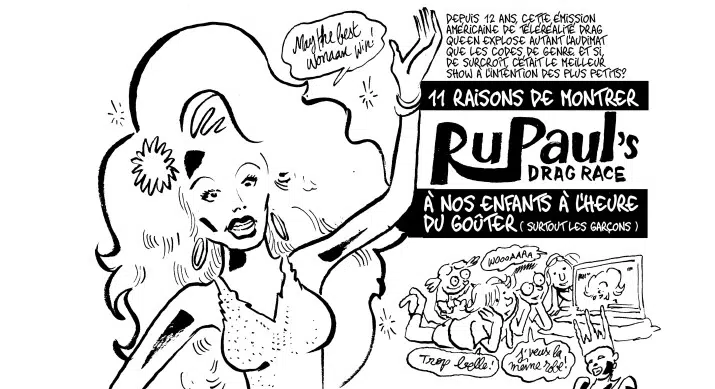 May the best
woman win!
DEPUIS 12 ANS, CETTE ÉMISSION
AMÉRICAINE DE TÉLÉRÉALITÉ DRAG
QUEEN EXPLOSE AUTANT L'AUDIMAT
QUE LES CODES DE GENRE. ET SI,
DE SURCROÎT, C'ÉTAIT LE MEILLEUR
SHOW À L'INTENTION DES PLUS PETITS?
11 RAISONS DE MONTRER
RuPaul's
DRAG RACE
À NOS ENFANTS À L'HEURE
DU GOÛTER (SURTOUT LES GARÇONS)
WOOOAAAA
Trop belle!
J'veux la
même robe!